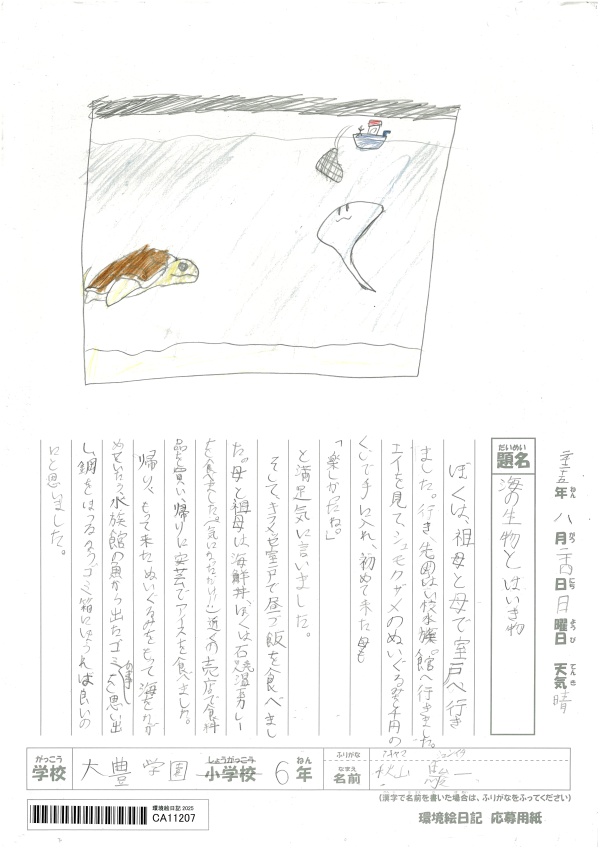 二十五年 八月 二十四日 日曜日 天気 晴
ねん がつ にち ようび てんき
だいめい
題名
海の生物とはいき物
ぼくは、祖母と母で室戸へ行き
ました。行き先は、はい校水族館へ行きました。
エイを見て、シュモクザメのぬいぐるみを千円の
くじで手に入れ、初めて来た母も
「楽しかったね。」
と満足気に言いました。
そして、キラメッセ室戸で昼ご飯を食べまし
た。母と祖母は海鮮丼、ぼくは石焼温カレー
を食べました。(気になっただけ!!)近くの売店で食料
品を買い、帰りに安芸でアイスを食べました。
帰り、もって来たぬいぐるみをもって海をなが
めていたら、水族館の魚から出たゴミの事を思い出
し、網をはったようなゴミ箱にしゅうれば良いの
にと思いました。
がっこう
学校
大豊学園
しょうがっこう
小学校
6年
ねん
ふりがな
アキヤマ シュンイチ
なまえ
名前
秋山 駿一
(漢字で名前を書いた場合は、ふりがなをふってください)
環境絵日記 2025
CA11207
環境絵日記 応募用紙